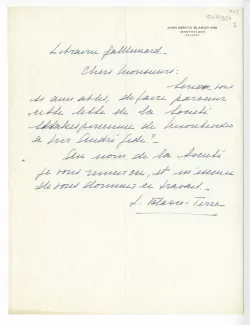 JUAN BENITO BLANCO 780
MONTEVIDEO
Librairie Gallimard.
Chers Monsieurs:
Seriez vous
si aimables, de faire parvenir
cette lettre de la Société
Shakespearienne de Montevideo
à Mr André Gide?
Au nom de la Société
je vous remercie, et m'excuse
de vous donner ce travail.
Velasco-Terra